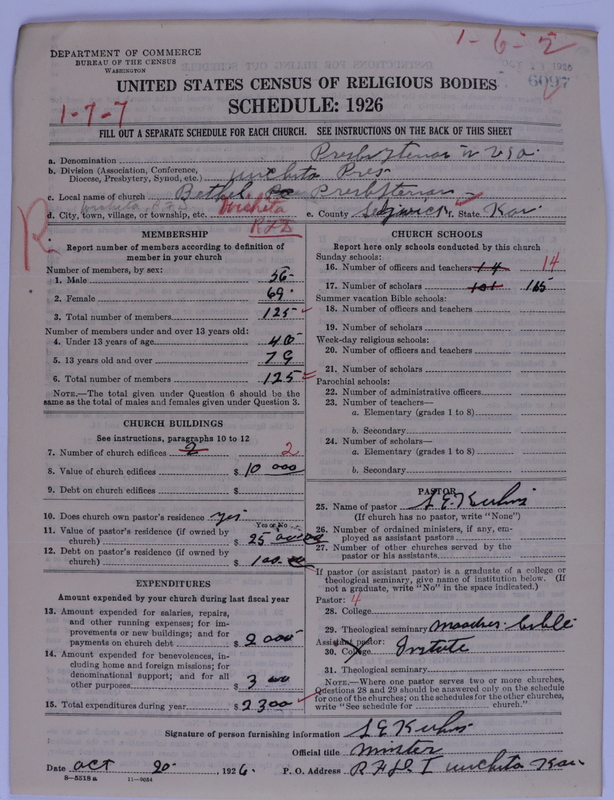 1-6-2
DEPARTMENT OF COMMERCE
BUREAU OF THE CENSUS
WASHINGTON
1926
6097
UNITED STATES CENSUS OF RELIGIOUS BODIES
1-7-7
SCHEDULE: 1926
FILL OUT A SEPARATE SCHEDULE FOR EACH CHURCH. SEE INSTRUCTIONS ON THE BACK OF THIS SHEET
a. Denomination Presbyterian in USA
b. Division (Association, Conference, Diocese, Presbytery, Synod, etc.) Wichita Pres
c. Local name of church Bethel Presbyterian
d. City, town, village, or township, etc. Wichita RFD e. County Sedgwick f. State Kan
R
MEMBERSHIP
Report number of members according to definition of member in your church
Number of members, by sex:
1. Male 56
2. Female 69
3. Total number of members 125
Number of members under and over 13 years old:
4. Under 13 years of age 46
5. 13 years old and over 79
6. Total number of members 125
NOTE.—The total given under Question 6 should be
same as the total of males and females given under Question 3.
CHURCH BUILDINGS
See instructions, paragraphs 10 to 12
7. Number of church edifices 2 2
8. Value of church edifices $ 10 000
9. Debt on church edifices $
10. Does church own pastor's residence yes
Yes or No
11. Value of pastor's residence (if owned by
church) $ 25 00
12. Debt on pastor's residence (if owned by
church) $ 100
EXPENDITURES
Amount expended by your church during last fiscal year
13. Amount expended for salaries, repairs,
and other running expenses; for im-
provements or new buildings; and for
payments on church debt $ 2 000
14. Amount expended for benevolences, in-
cluding home and foreign missions; for
denominational support; and for all
other purposes $ 3 00
15. Total expenditures during year $ 2300
CHURCH SCHOOLS
Report here only schools conducted by this church
Sunday schools:
16. Number of officers and teachers 14 14
17. Number of scholars 101 165
Summer vacation Bible schools:
18. Number of officers and teachers
19. Number of scholars
Week-day religious schools:
20. Number of officers and teachers
21. Number of scholars
Parochial schools:
22. Number of administrative officers
23. Number of teachers—
a. Elementary (grades 1 to 8)
b. Secondary
24. Number of scholars—
a. Elementary (grades 1 to 8)
b. Secondary
PASTOR
25. Name of pastor S E Kuhns
(If church has no pastor, write "None")
26. Number of ordained ministers, if any, em-
ployed as assistant pastors
27. Number of other churches served by the
pastor or his assistants
If pastor (or assistant pastor) is a graduate of a college or
theological seminary, give name of institution below. (If
not a graduate, write "No" in the space indicated.)
Pastor: 4
28. College
29. Theological seminary Moodies Bible
Assistant pastor:
30. College Institute
31. Theological seminary
NOTE.—Where one pastor serves two or more churches,
Questions 28 and 29 should be answered only on the schedule
for one of the churches; on the schedules for the other churches,
write "See schedule for church."
Signature of person furnishing information S E Kuhns
Official title Minister
Date Oct 20 1926. P. O. Address R F D 1 Wichita Kan
8-5518a 11-9054